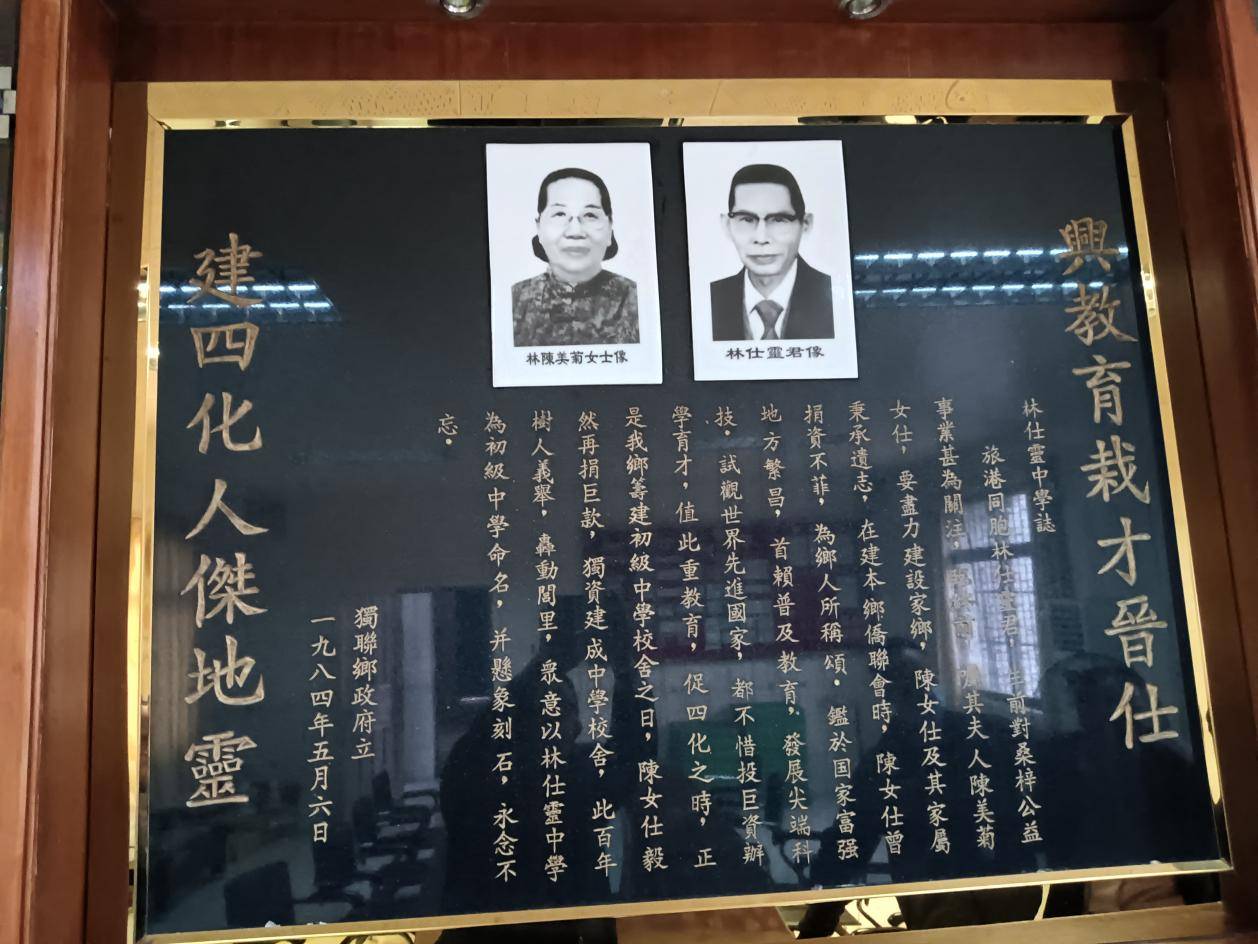 興教育栽才晉仕
林陳美菊女士像
林仕靈君像
林仕靈中學誌
旅港同胞林仕靈君，生前對桑梓公益
事業甚為關注，其夫人陳美菊
女仕，要盡力建設家鄉，陳女仕及其家屬
秉承遺志，在建本鄉僑聯會時，陳女仕曾
捐資不菲，為鄉人所稱頌．鑑於国家富强
地方繁昌，首賴普及教育，發展尖端科
技．試觀世界先進國家，都不惜投巨資辦
學育才，值此重教育，促四化之時，正
是我鄉籌建初級中學校舍之日，陳女仕毅
然再捐巨款，獨資建成中學校舍，此百年
樹人義舉，轟動閭里，衆意以林仕靈中學
為初級中學命名，并懸象刻石，永念不
忘．
獨聯鄉政府立
一九八四年五月六日
建四化人傑地靈